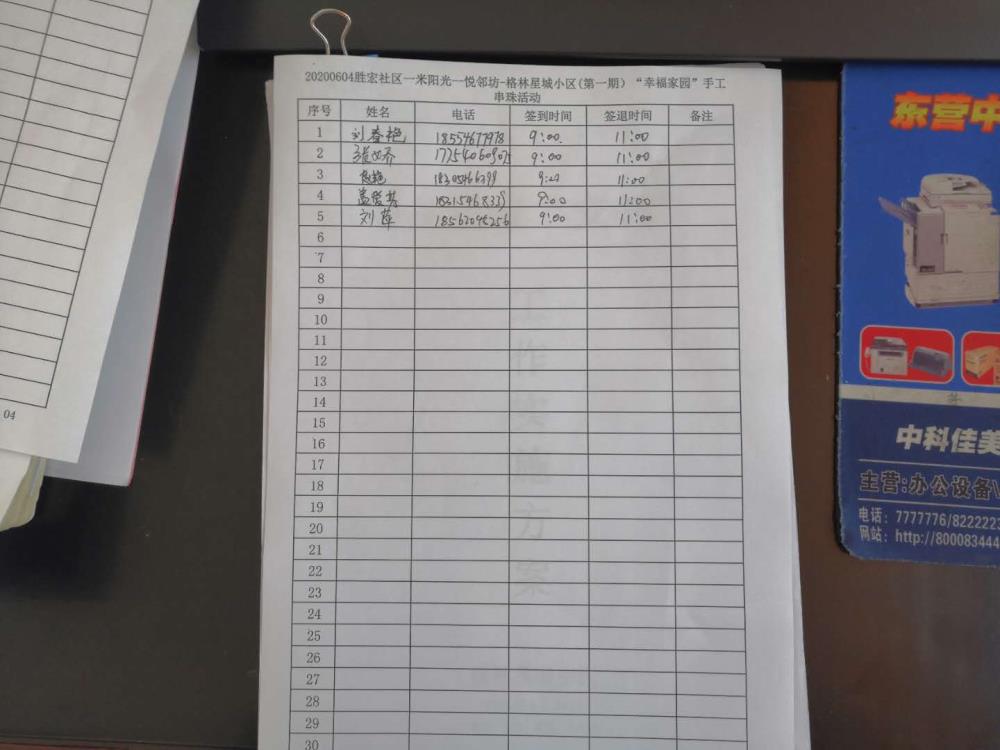 20200604胜宏社区一米阳光一悦邻坊-格林星城小区(第一期）“幸福家园”手工
串珠活动
序号 姓名 电话 签到时间 签退时间 备注
1 刘春艳 18554677978 9:00. 11:00
2 9:00 11:00
3 11:00
4 9:00 11:00
5 刘萍 9:00 11:00
6
7
8
9
10
11
12
13
14
15
16
17
18
19
20
21
22
23
24
25
26
27
28
29
30
工作实施方案
04
东营中
中科佳美
主营:办公设备\
电话: 7777776/8222223
网站: http://80008344